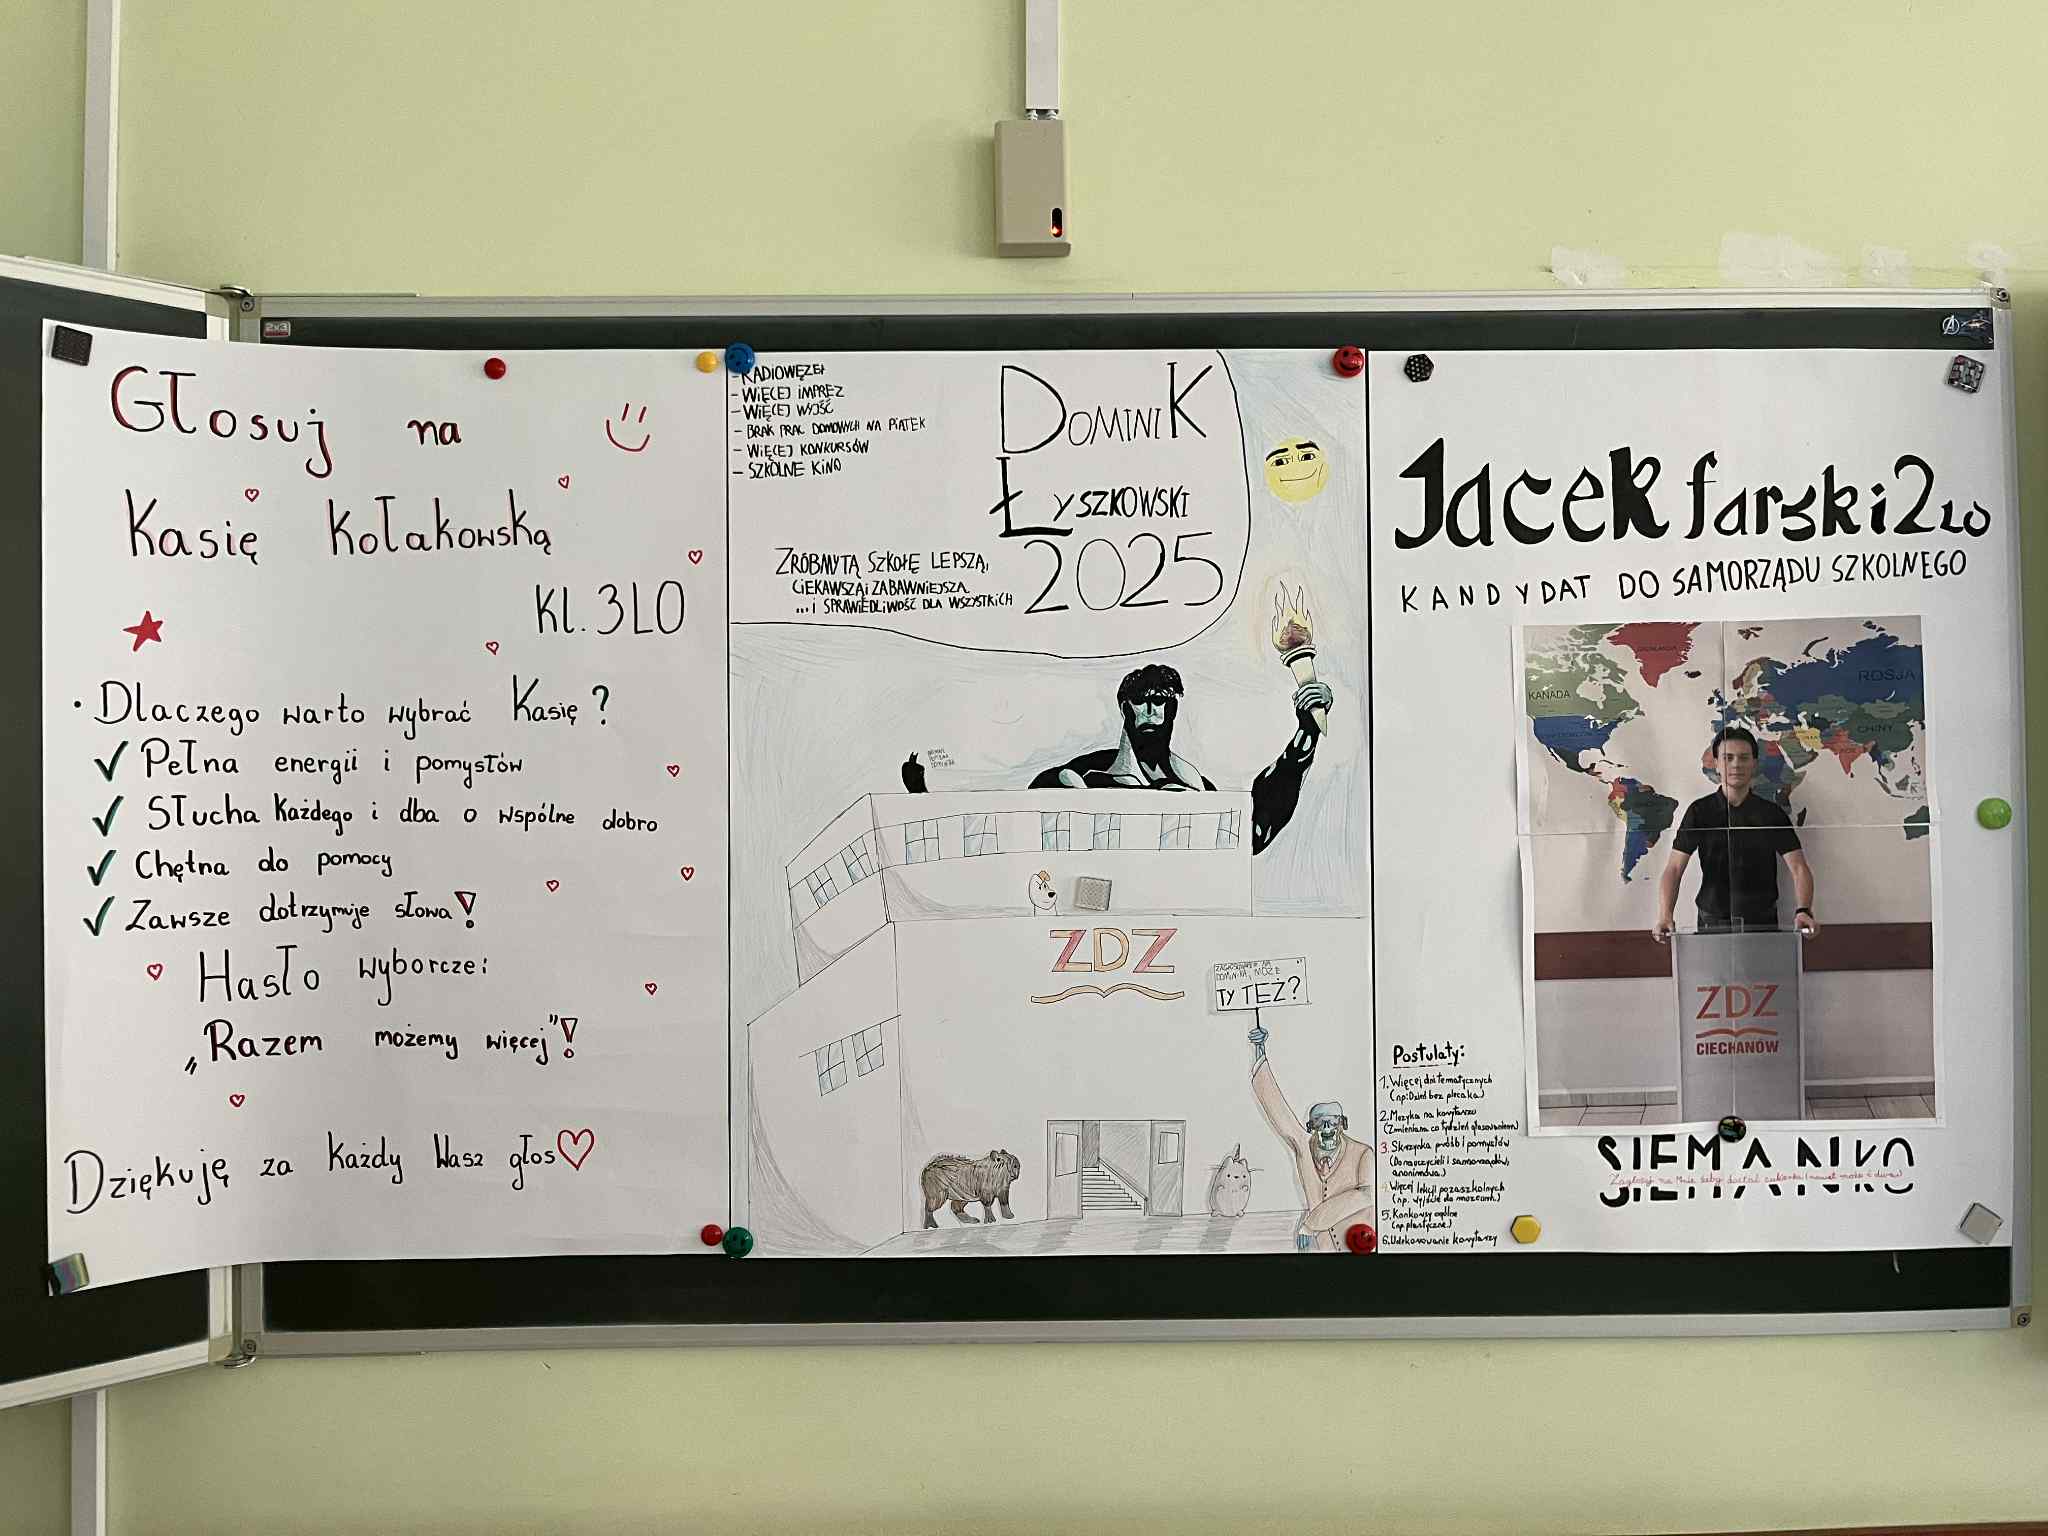 2x3
Głosuj na
Kasię Kołakowską
Kl. 3LO
• Dlaczego warto wybrać Kasię?
✓ Pełna energii i pomysłów
✓ Słucha każdego i dba o wspólne dobro
✓ Chętna do pomocy
✓ Zawsze dotrzymuje słowa!
Hasło wyborcze:
„Razem możemy więcej”!
Dziękuję za każdy Wasz głos
- RADIOWĘZEŁ
- WIĘCEJ IMPREZ
- WIĘCEJ WYJŚĆ
- BRAK PRAC DOMOWYCH NA PIĄTEK
- WIĘCEJ KONKURSÓW
- SZKOLNE KINO
DOMINIK
ŁYSZKOWSKI
2025
ZRÓBMY TĄ SZKOŁĘ LEPSZĄ,
CIEKAWSZĄ I ZABAWNIEJSZĄ
...I SPRAWIEDLIWOŚĆ DLA WSZYSTKICH
ZDZ
ZAGŁOSOWAŁEM NA
DOMINIKA, MOŻE
TY TEŻ?
Jacek farski 2LO
KANDYDAT DO SAMORZĄDU SZKOLNEGO
GRENLANDIA
KANADA
ROSJA
CHINY
ZDZ
CIECHANÓW
Postulaty:
1. Więcej dni tematycznych
(np: Dzień bez plecaka)
2. Muzyka na korytarzu
(Zmieniana co tydzień głosowaniem)
3. Skrzynka próśb i pomysłów
(Do nauczycieli i samorządów,
anonimowa.)
4. Więcej lekcji pozaszkolnych
(np. wyjście do muzeum.)
5. Konkursy ogólne
(np plastyczne.)
6. Udekorowanie korytarzy
SIEMANKO
Zagłosuj na Mnie żeby dostać cukierka (nawet może i dwa)